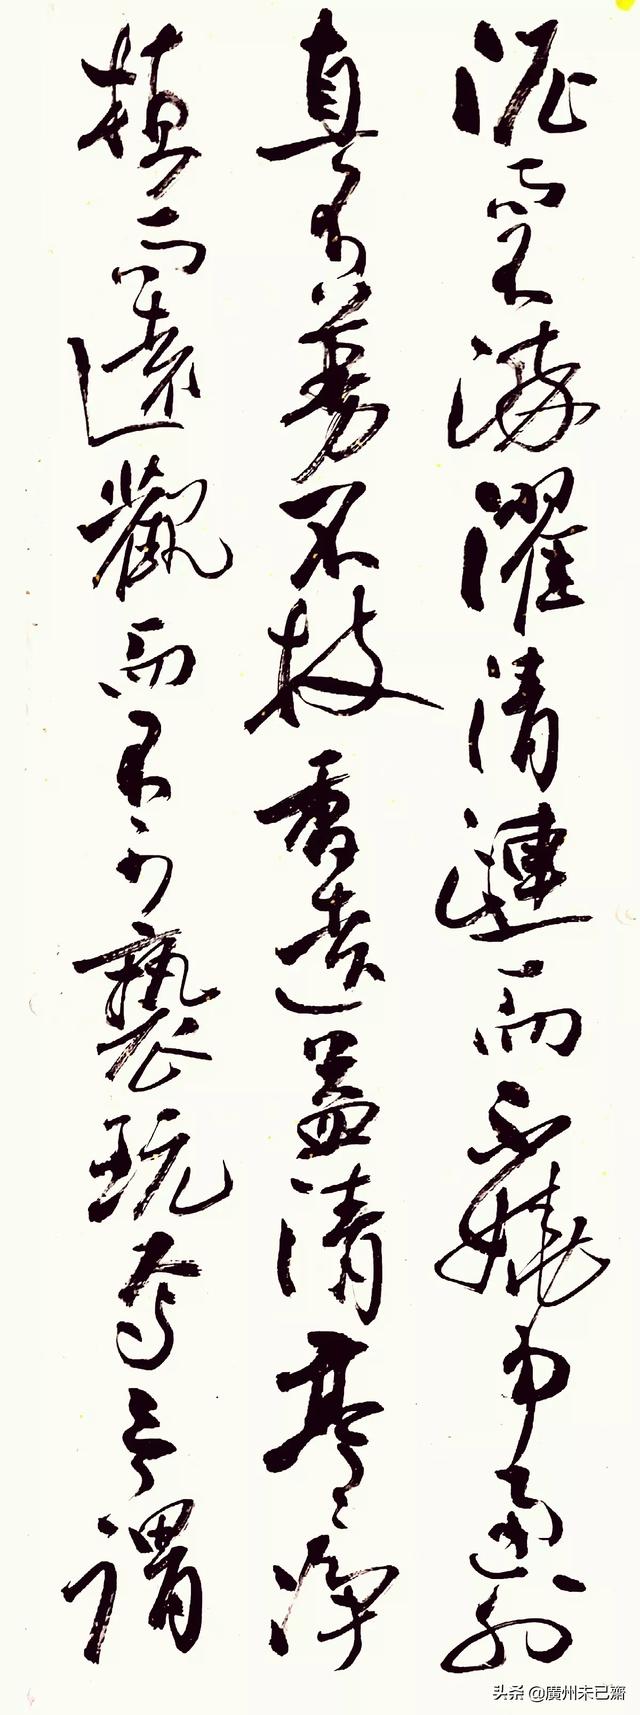 泥而不染濯清漣而不妖中通外
直不蔓不枝香遠益清亭亭淨
植可遠觀而不可褻玩焉予謂
头条 @廣州未已齋